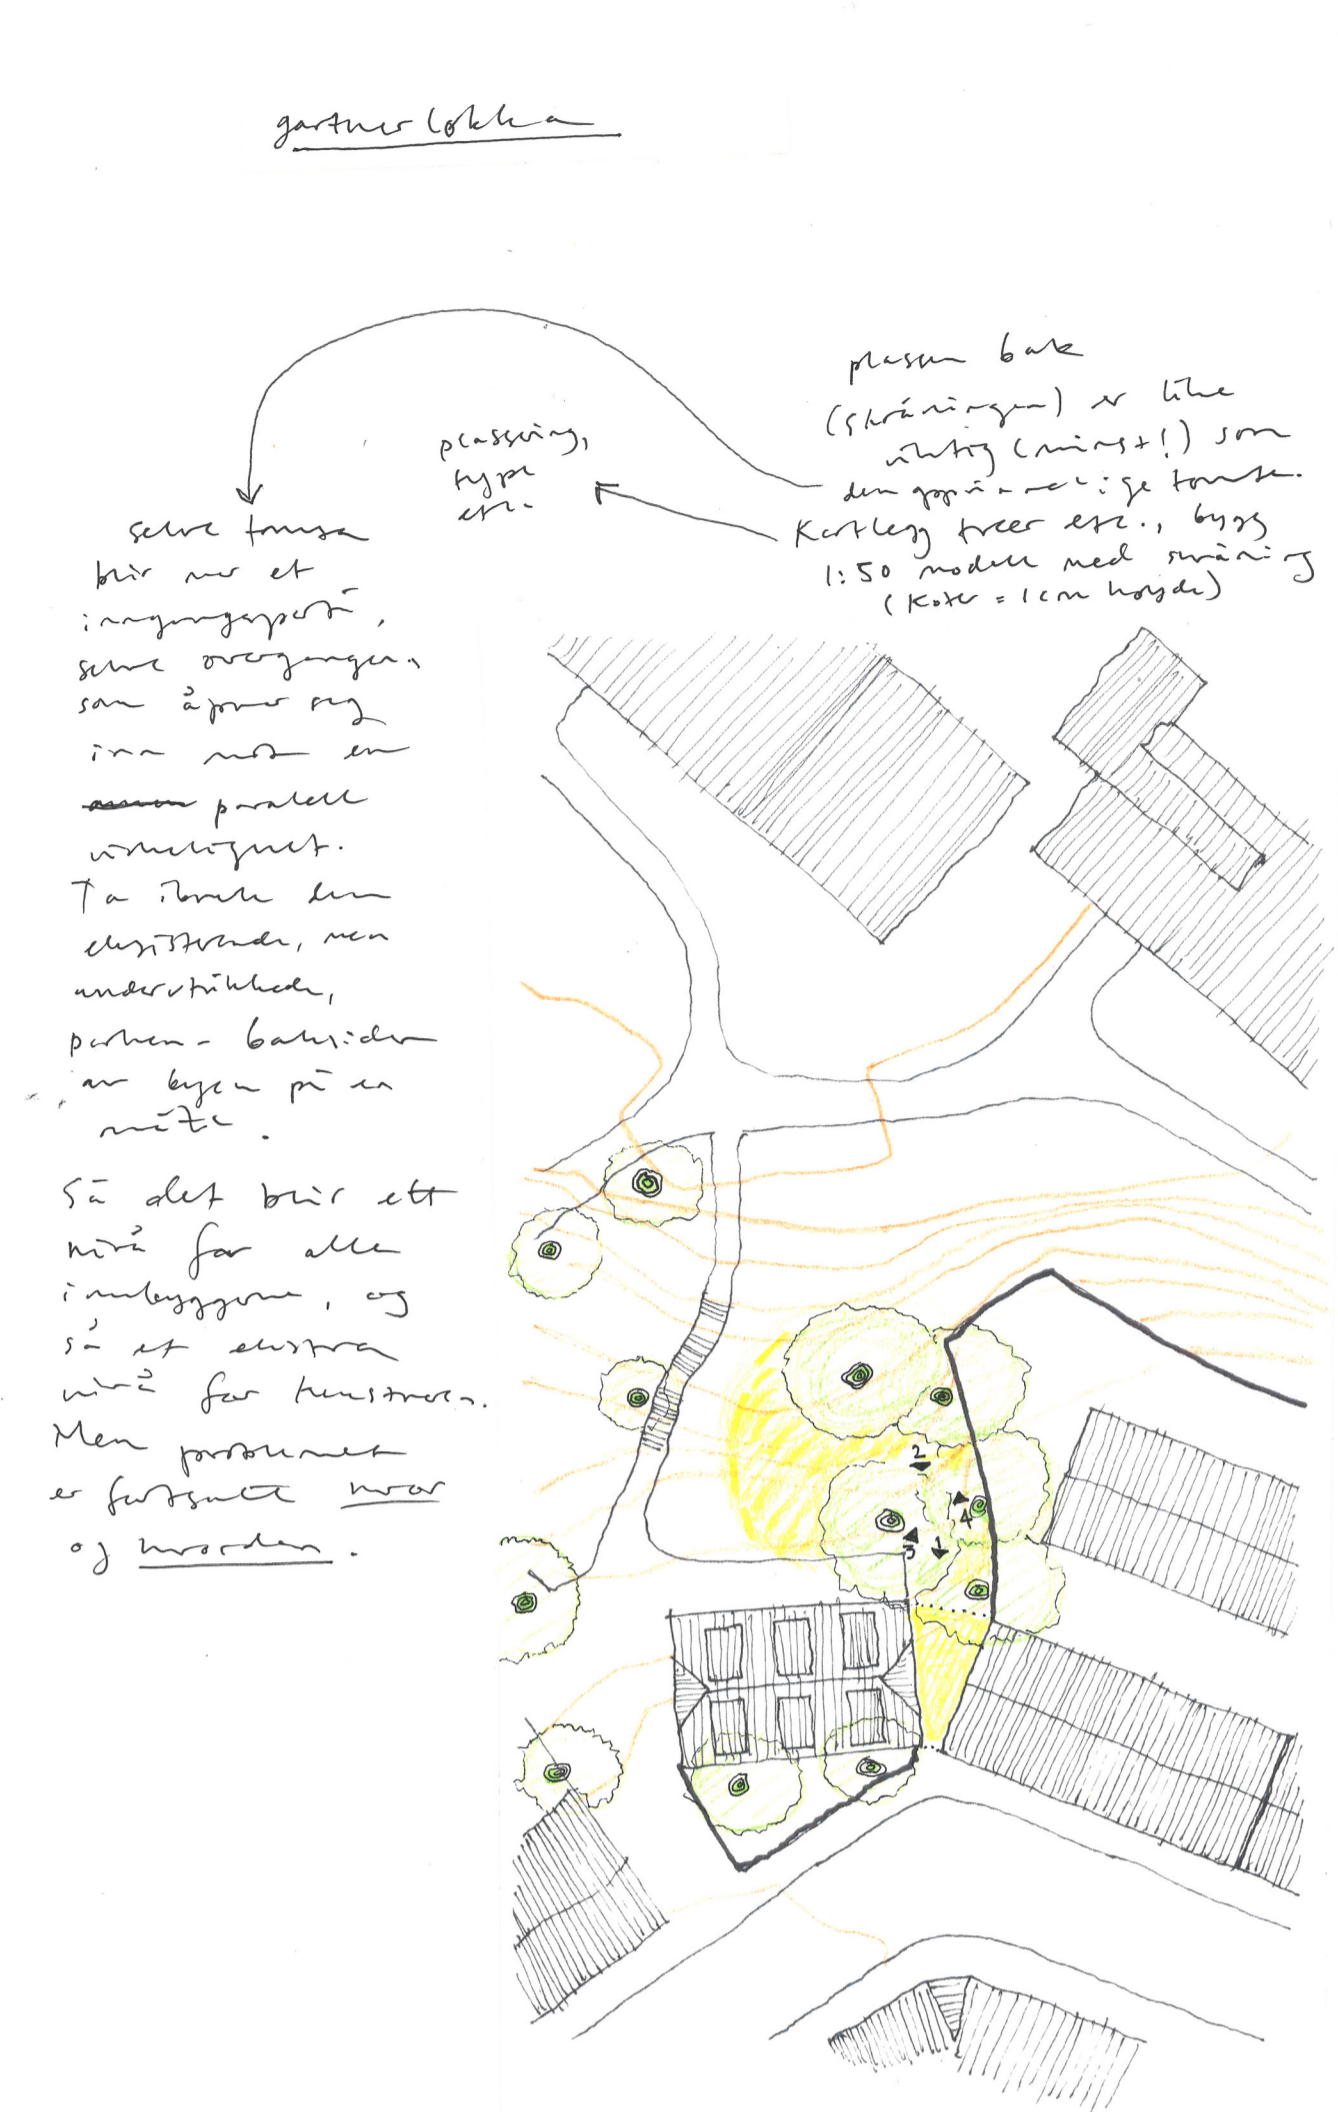 gartnerløkka
plassen bak
(skråningen) er like
viktig (minst!) som
den opprinnelige tomten.
Kartlegg trær etc., bygg
1:50 modell med skråning
(Koter = 1cm høyde)
plassering,
type
etc.
selve tomta
blir mer et
inngangsparti,
selve overgangen,
som åpner seg
inn mot en
paralell
virkelighet.
Ta ibruk den
eksisterende, men
undertrykkede,
parken - baksiden
av byen på en
måte.
Så det blir ett
nivå for alle
innbyggerne, og
så et ekstra
nivå for kunstneren.
Men problemet
er fortsatt hvor
og hvordan.
2
4
3
1